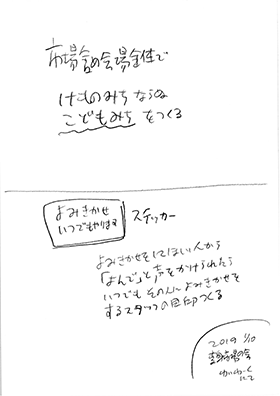 市場含め会場全体で
けものみちならぬ
こどもみちをつくる
よみきかせ
いつでもやります
ステッカー
よみきかせをしてほしい人から
「よんで」と声をかけられたら
いつでもその人へよみきかせを
するスタッフの目印つくる
2019 1/10
にて